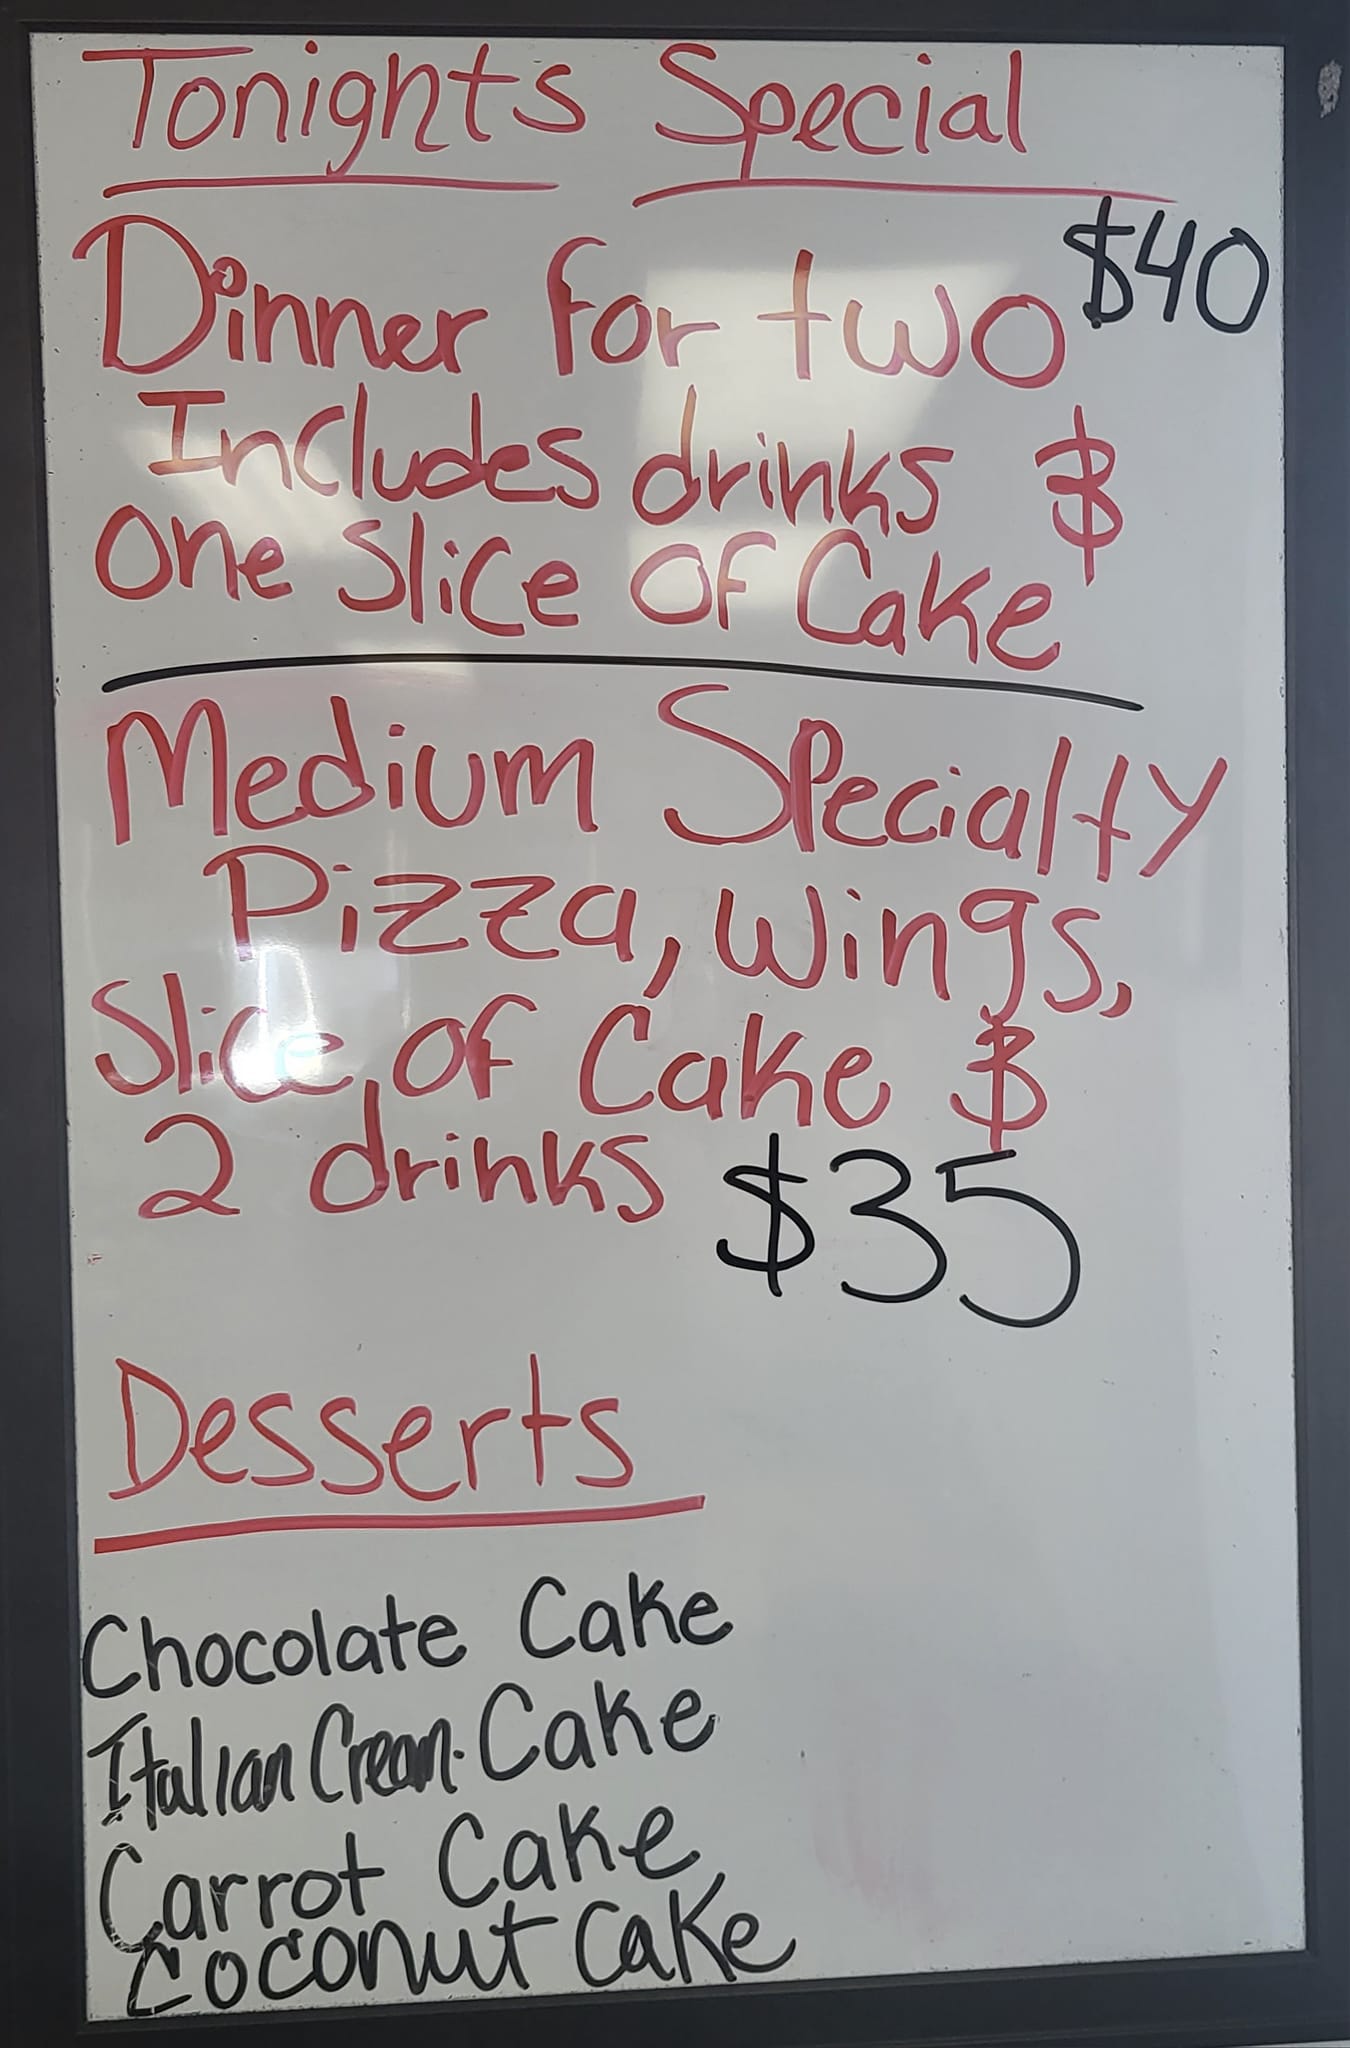 Tonights Special
Dinner for two $40
Includes drinks &
one slice of Cake
Medium Specialty
Pizza, Wings,
Slice of Cake &
2 drinks $35
Desserts
Chocolate Cake
Italian Cream Cake
Carrot Cake
Coconut Cake